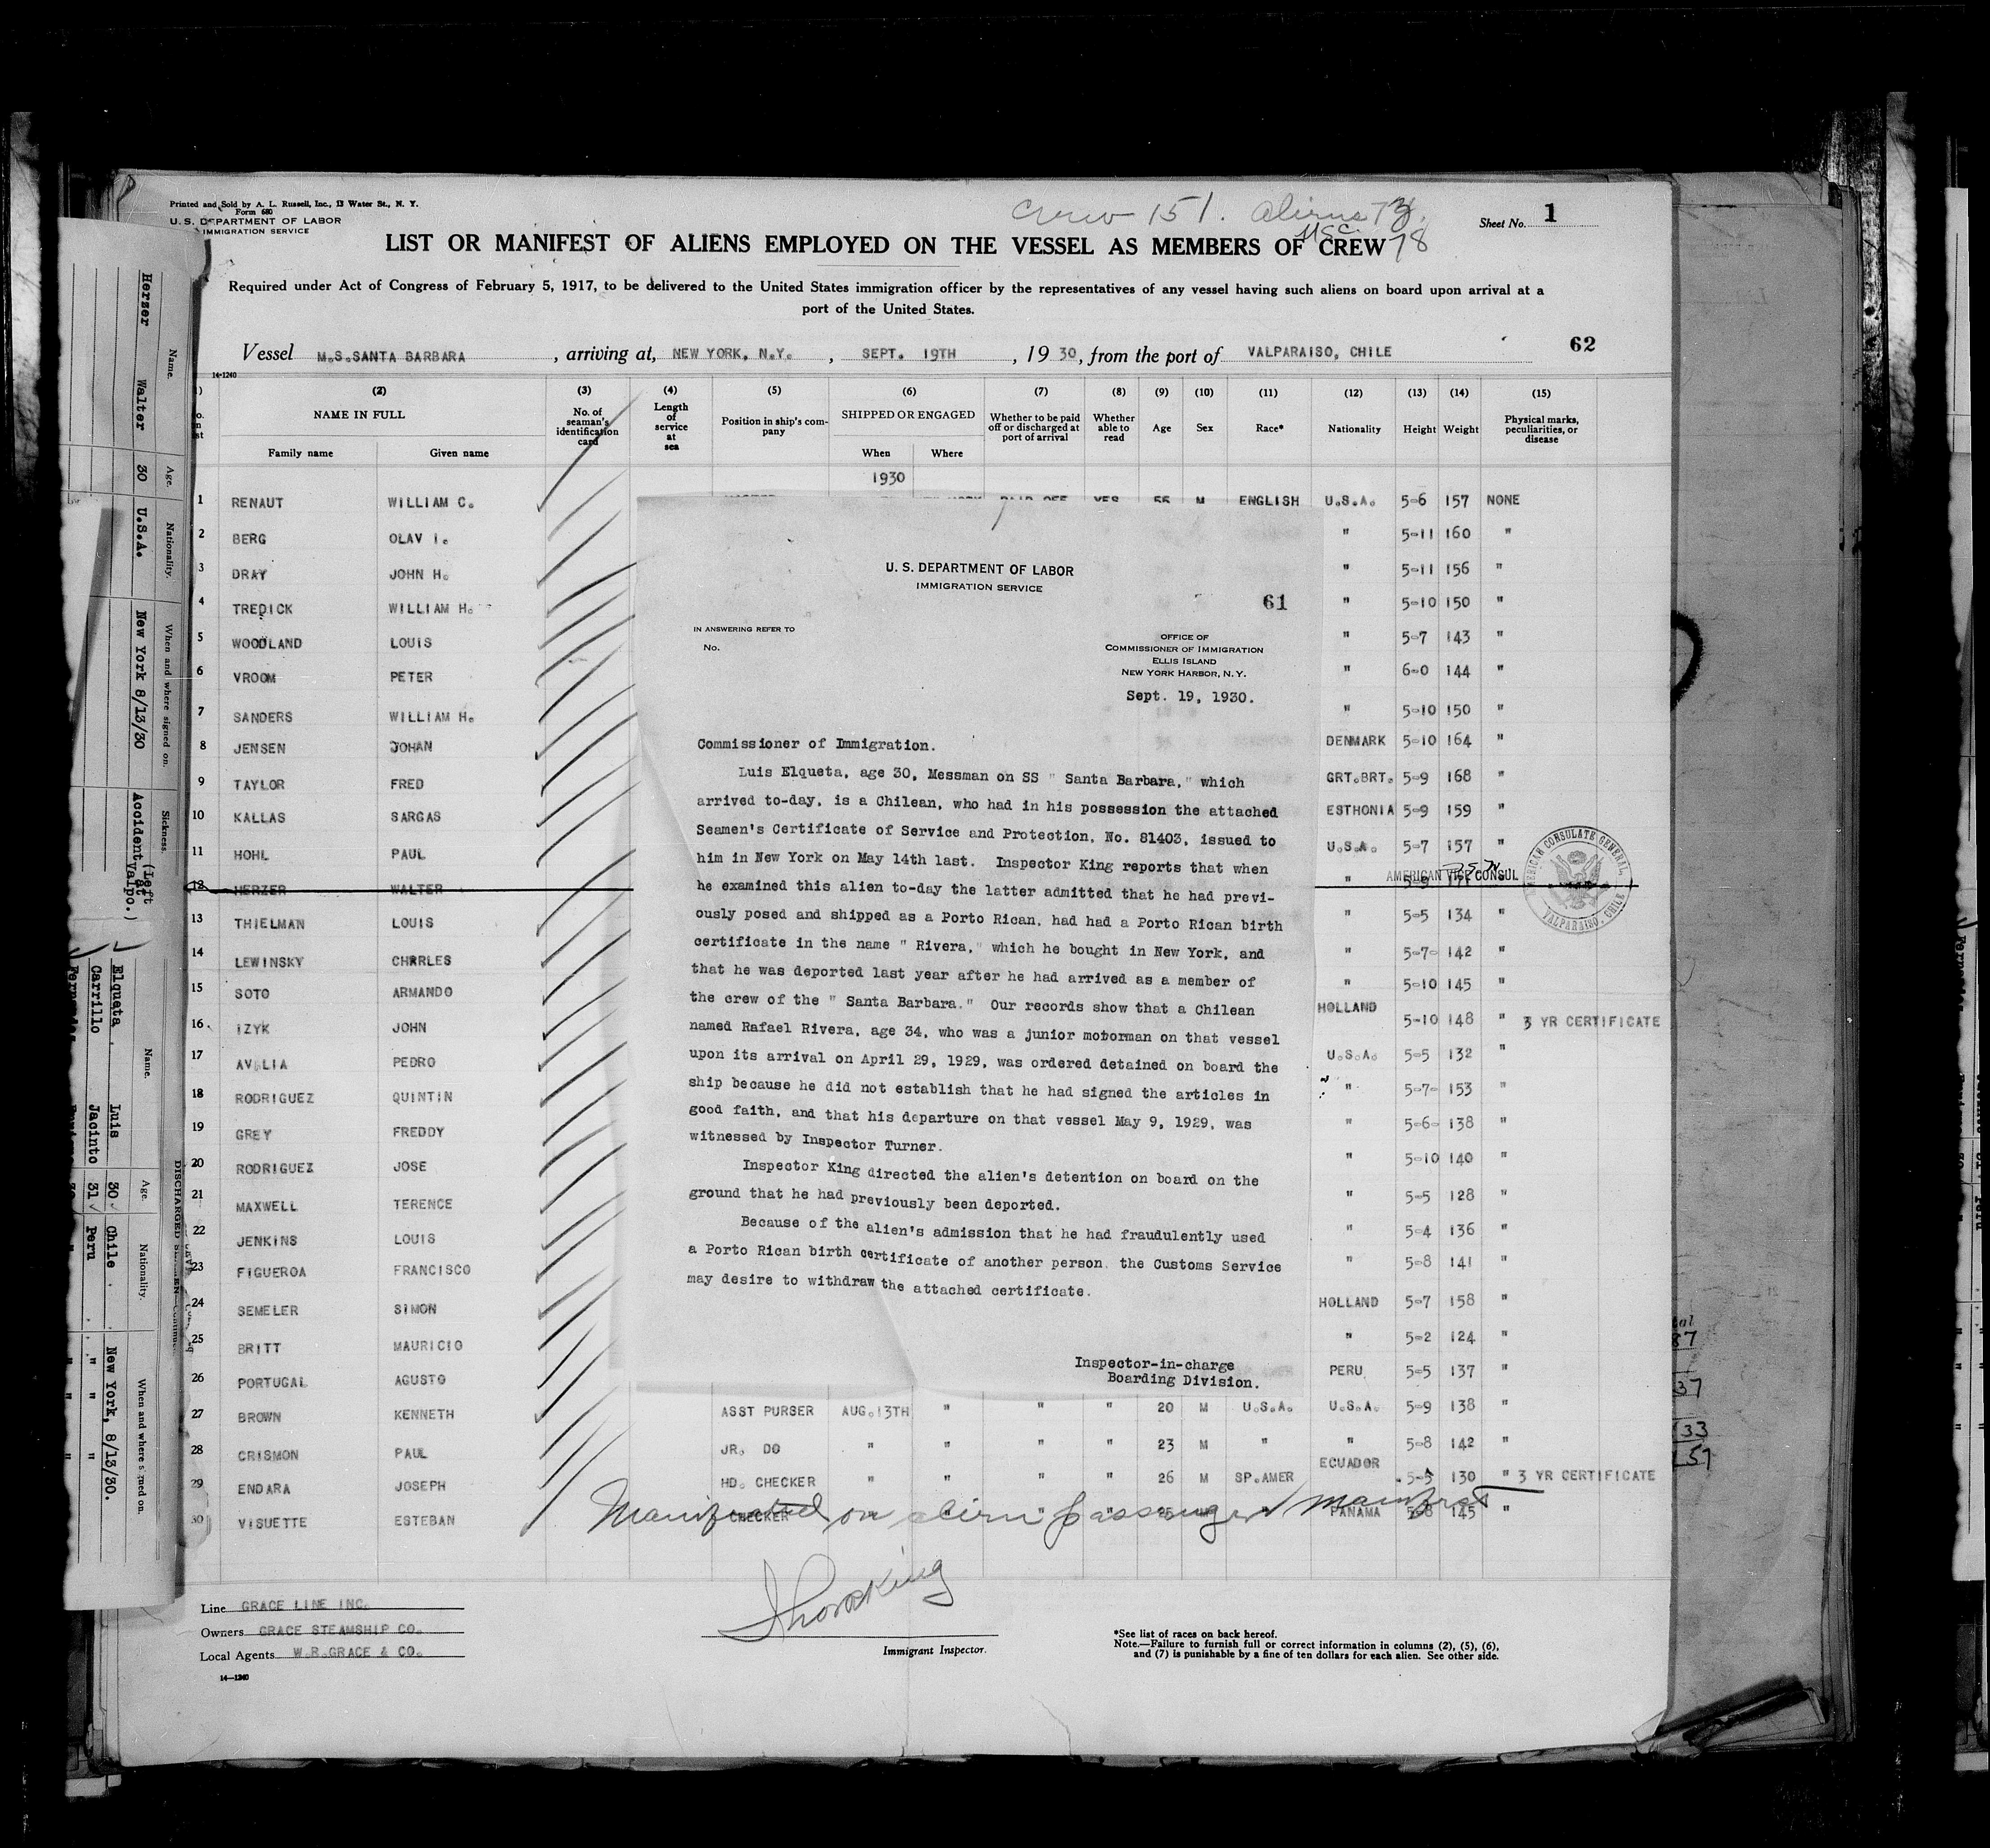 Printed and Sold by A. L. Russell, Inc., 13 Water St., N. Y.
Form 680
U. S. DEPARTMENT OF LABOR
IMMIGRATION SERVICE
Crew 151. Aliens 73.
USC. 78
Sheet No. 1
LIST OR MANIFEST OF ALIENS EMPLOYED ON THE VESSEL AS MEMBERS OF CREW
Required under Act of Congress of February 5, 1917, to be delivered to the United States immigration officer by the representatives of any vessel having such aliens on board upon arrival at a
port of the United States.
Vessel M.S.SANTA BARBARA, arriving at, NEW YORK, N.Y., SEPT. 19TH, 1930, from the port of VALPARAISO, CHILE
62
14-1240
(2) (3) (4) (5) (6) (7) (8) (9) (10) (11) (12) (13) (14) (15)
NAME IN FULL
Family name Given name
No. of seaman's identification card
Length of service at sea
Position in ship's company
SHIPPED OR ENGAGED
When Where
Whether to be paid off or discharged at port of arrival
Whether able to read
Age
Sex
Race*
Nationality
Height
Weight
Physical marks, peculiarities, or disease
1930
1 RENAUT WILLIAM C. PAID OFF YES 55 M ENGLISH U.S.A. 5-6 157 NONE
2 BERG OLAV I. " 5-11 160 "
3 DRAY JOHN H. " 5-11 156 "
4 TREDICK WILLIAM H. " 5-10 150 "
5 WOODLAND LOUIS " 5-7 143 "
6 VROOM PETER " 6-0 144 "
7 SANDERS WILLIAM H. " 5-10 150 "
8 JENSEN JOHAN DENMARK 5-10 164 "
9 TAYLOR FRED GRT.BRT. 5-9 168 "
10 KALLAS SARGAS ESTHONIA 5-9 159 "
11 HOHL PAUL U.S.A. 5-7 157 "
12 HERZER WALTER " 5-9
AMERICAN VICE CONSUL
AMERICAN CONSULATE GENERAL, VALPARAISO, CHILE
13 THIELMAN LOUIS " 5-5 134 "
14 LEWINSKY CHARLES " 5-7- 142 "
15 SOTO ARMANDO " 5-10 145 "
16. IZYK JOHN HOLLAND 5-10 148 " 3 YR CERTIFICATE
17 PEDRO U.S.A. 5-5 132 "
18 RODRIGUEZ QUINTIN " 5-7- 153 "
19 GREY FREDDY " 5-6- 138 "
20 RODRIGUEZ JOSE " 5-10 140 "
21 MAXWELL TERENCE " 5-5 128 "
22 JENKINS LOUIS " 5-4 136 "
23 FIGUEROA FRANCISCO " 5-8 141 "
24 SEMELER SIMON HOLLAND 5-7 158 "
25 BRITT MAURICIO " 5-2 124 "
26 PORTUGAL AGUSTO PERU 5-5 137 "
27 BROWN KENNETH ASST PURSER AUG.13TH " " " 20 M U.S.A. U.S.A. 5-9 138 "
28 CRISMON PAUL JR. DO " " " " 23 M " " 5-8 142 "
29 ENDARA JOSEPH HD. CHECKER " " " " 26 M SP.AMER ECUADOR 5-5 130 " 3 YR CERTIFICATE
30 VISUETTE ESTEBAN CHECKER PANAMA 5-8 145 "
Manifested on alien passenger manifest
Line GRACE LINE INC.
Owners GRACE STEAMSHIP CO.
Local Agents W.R.GRACE & CO.
14—1240
Immigrant Inspector.
*See list of races on back hereof.
Note.—Failure to furnish full or correct information in columns (2), (5), (6),
and (7) is punishable by a fine of ten dollars for each alien. See other side.
U. S. DEPARTMENT OF LABOR
IMMIGRATION SERVICE
61
IN ANSWERING REFER TO
No.
OFFICE OF
COMMISSIONER OF IMMIGRATION
ELLIS ISLAND
NEW YORK HARBOR, N.Y.
Sept. 19, 1930.
Commissioner of Immigration.
Luis Elqueta, age 30, Messman on SS " Santa Barbara," which
arrived to-day, is a Chilean, who had in his possession the attached
Seamen's Certificate of Service and Protection, No. 81403, issued to
him in New York on May 14th last. Inspector King reports that when
he examined this alien to-day the latter admitted that he had previ-
ously posed and shipped as a Porto Rican, had had a Porto Rican birth
certificate in the name " Rivera," which he bought in New York, and
that he was deported last year after he had arrived as a member of
the crew of the " Santa Barbara." Our records show that a Chilean
named Rafael Rivera, age 34, who was a junior motorman on that vessel
upon its arrival on April 29, 1929, was ordered detained on board the
ship because he did not establish that he had signed the articles in
good faith, and that his departure on that vessel May 9, 1929, was
witnessed by Inspector Turner.
Inspector King directed the alien's detention on board on the
ground that he had previously been deported.
Because of the alien's admission that he had fraudulently used
a Porto Rican birth certificate of another person, the Customs Service
may desire to withdraw the attached certificate.
Inspector-in-charge
Boarding Division.
Name. Age. Nationality. When and where signed on. Sickness.
Herzer Walter 30 U.S.A. New York 8/13/30 Accident (left at Valpo.)
DISCHARGED
Name. Age. Nationality. When and where signed on.
Elqueta Luis 30 Chile New York, 8/13/30.
Carrillo Jacinto 31 Peru " "